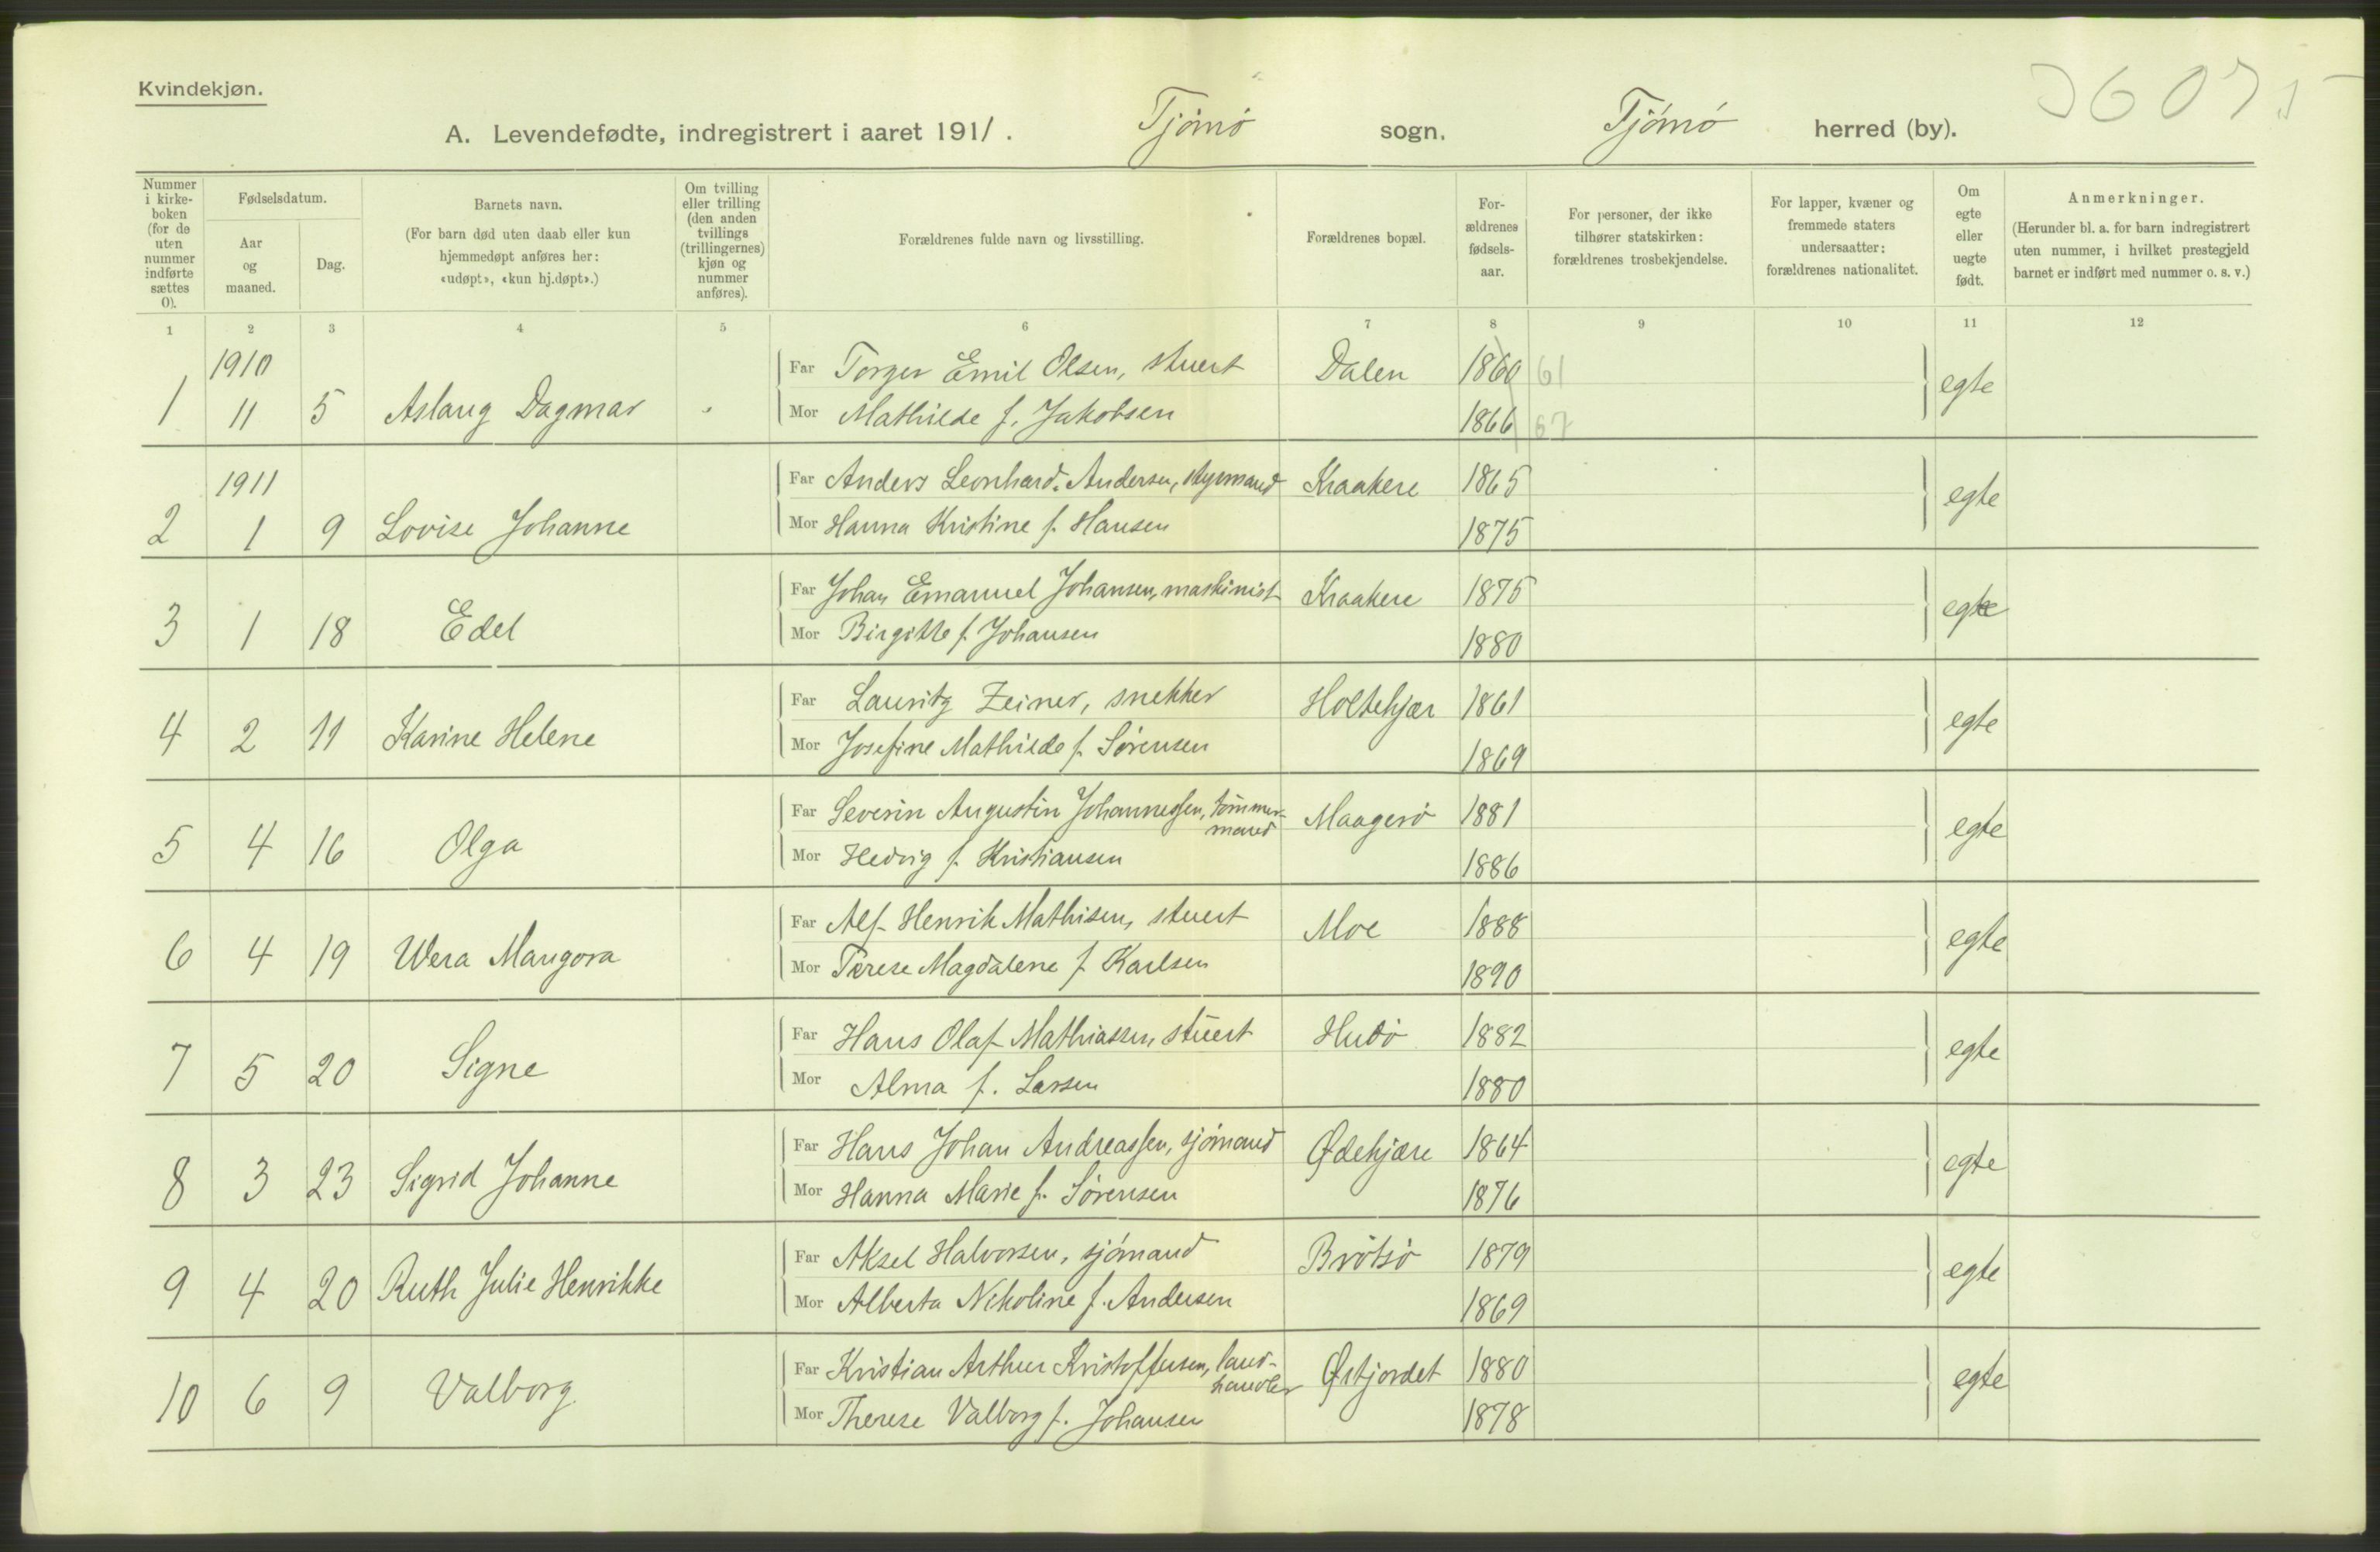 Kvindekjøn.
A. Levendefødte, indregistrert i aaret 1911. Tjømø sogn. Tjømø herred (by).
Nummer i kirke-boken (for de uten nummer indførte sættes 0).
Fødselsdatum.
Aar og maaned.
Dag.
Barnets navn.
(For barn død uten daab eller kun hjemmedøpt anføres her: «udøpt», «kun hj.døpt».)
Om tvilling eller trilling (den anden tvillings (trillingernes) kjøn og nummer anføres).
Forældrenes fulde navn og livsstilling.
Forældrenes bopæl.
For-ældrenes fødsels-aar.
For personer, der ikke tilhører statskirken: forældrenes trosbekjendelse.
For lapper, kvæner og fremmede staters undersaatter: forældrenes nationalitet.
Om egte eller uegte født.
Anmerkninger.
(Herunder bl. a. for barn indregistrert uten nummer, i hvilket prestegjeld barnet er indført med nummer o. s. v.)
1 2 3 4 5 6 7 8 9 10 11 12
1910
Far Torger Emil Olsen, stuert Dalen 1860 61
1 11 5 Aslaug Dagmar egte
Mor Mathilde f. Jakobsen 1866 67
1911
Far Anders Leonhard Andersen, styrmand Kraakere 1865
2 1 9 Lovise Johanne egte
Mor Hanna Kristine f. Hansen 1875
Far Johan Emanuel Johansen, maskinist Kraakere 1875
3 1 18 Edel egte
Mor Birgitte f. Johansen 1880
Far Lauritz Zeiner, snekker Holtekjær 1861
4 2 11 Karine Helene egte
Mor Josefine Mathilde f. Sørensen 1869
Far Severin Augustin Johannessen, tømmer-mand Maagerø 1881
5 4 16 Olga egte
Mor Hedvig f. Kristiansen 1886
Far Alf Henrik Mathisen, stuert Moe 1888
6 4 19 Wera Mangora egte
Mor Terese Magdalene f. Karlsen 1890
Far Hans Olaf Mathiassen, stuert Hudø 1882
7 5 20 Signe egte
Mor Alma f. Larsen 1880
Far Hans Johan Andreassen, sjømand Ødekjære 1864
8 3 23 Sigrid Johanne egte
Mor Hanna Marie f. Sørensen 1876
Far Aksel Halvorsen, sjømand Brøtsø 1879
9 4 20 Ruth Julie Henrikke egte
Mor Alberta Nikoline f. Andersen 1869
Far Kristian Arthur Kristoffersen, land-handler Østjordet 1880
10 6 9 Valborg egte
Mor Therese Valborg f. Johansen 1878